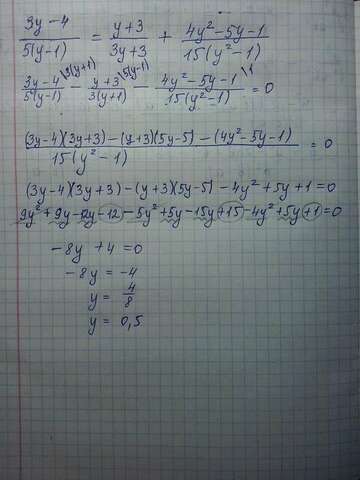 (3y-4)/(5(y-1)) = (y+3)/(3y+3) + (4y²-5y-1)/(15(y²-1))
(3y-4)/(5(y-1)) \3(y+1) - (y+3)/(3(y+1)) \5(y-1) - (4y²-5y-1)/(15(y²-1)) \1 = 0
((3y-4)(3y+3)-(y+3)(5y-5)-(4y²-5y-1))/(15(y²-1)) = 0
(3y-4)(3y+3)-(y+3)(5y-5)-4y²+5y+1=0
9y²+9y-12y-12-5y²+5y-15y+15-4y²+5y+1=0
-8y+4=0
-8y=-4
y = 4/8
y = 0,5